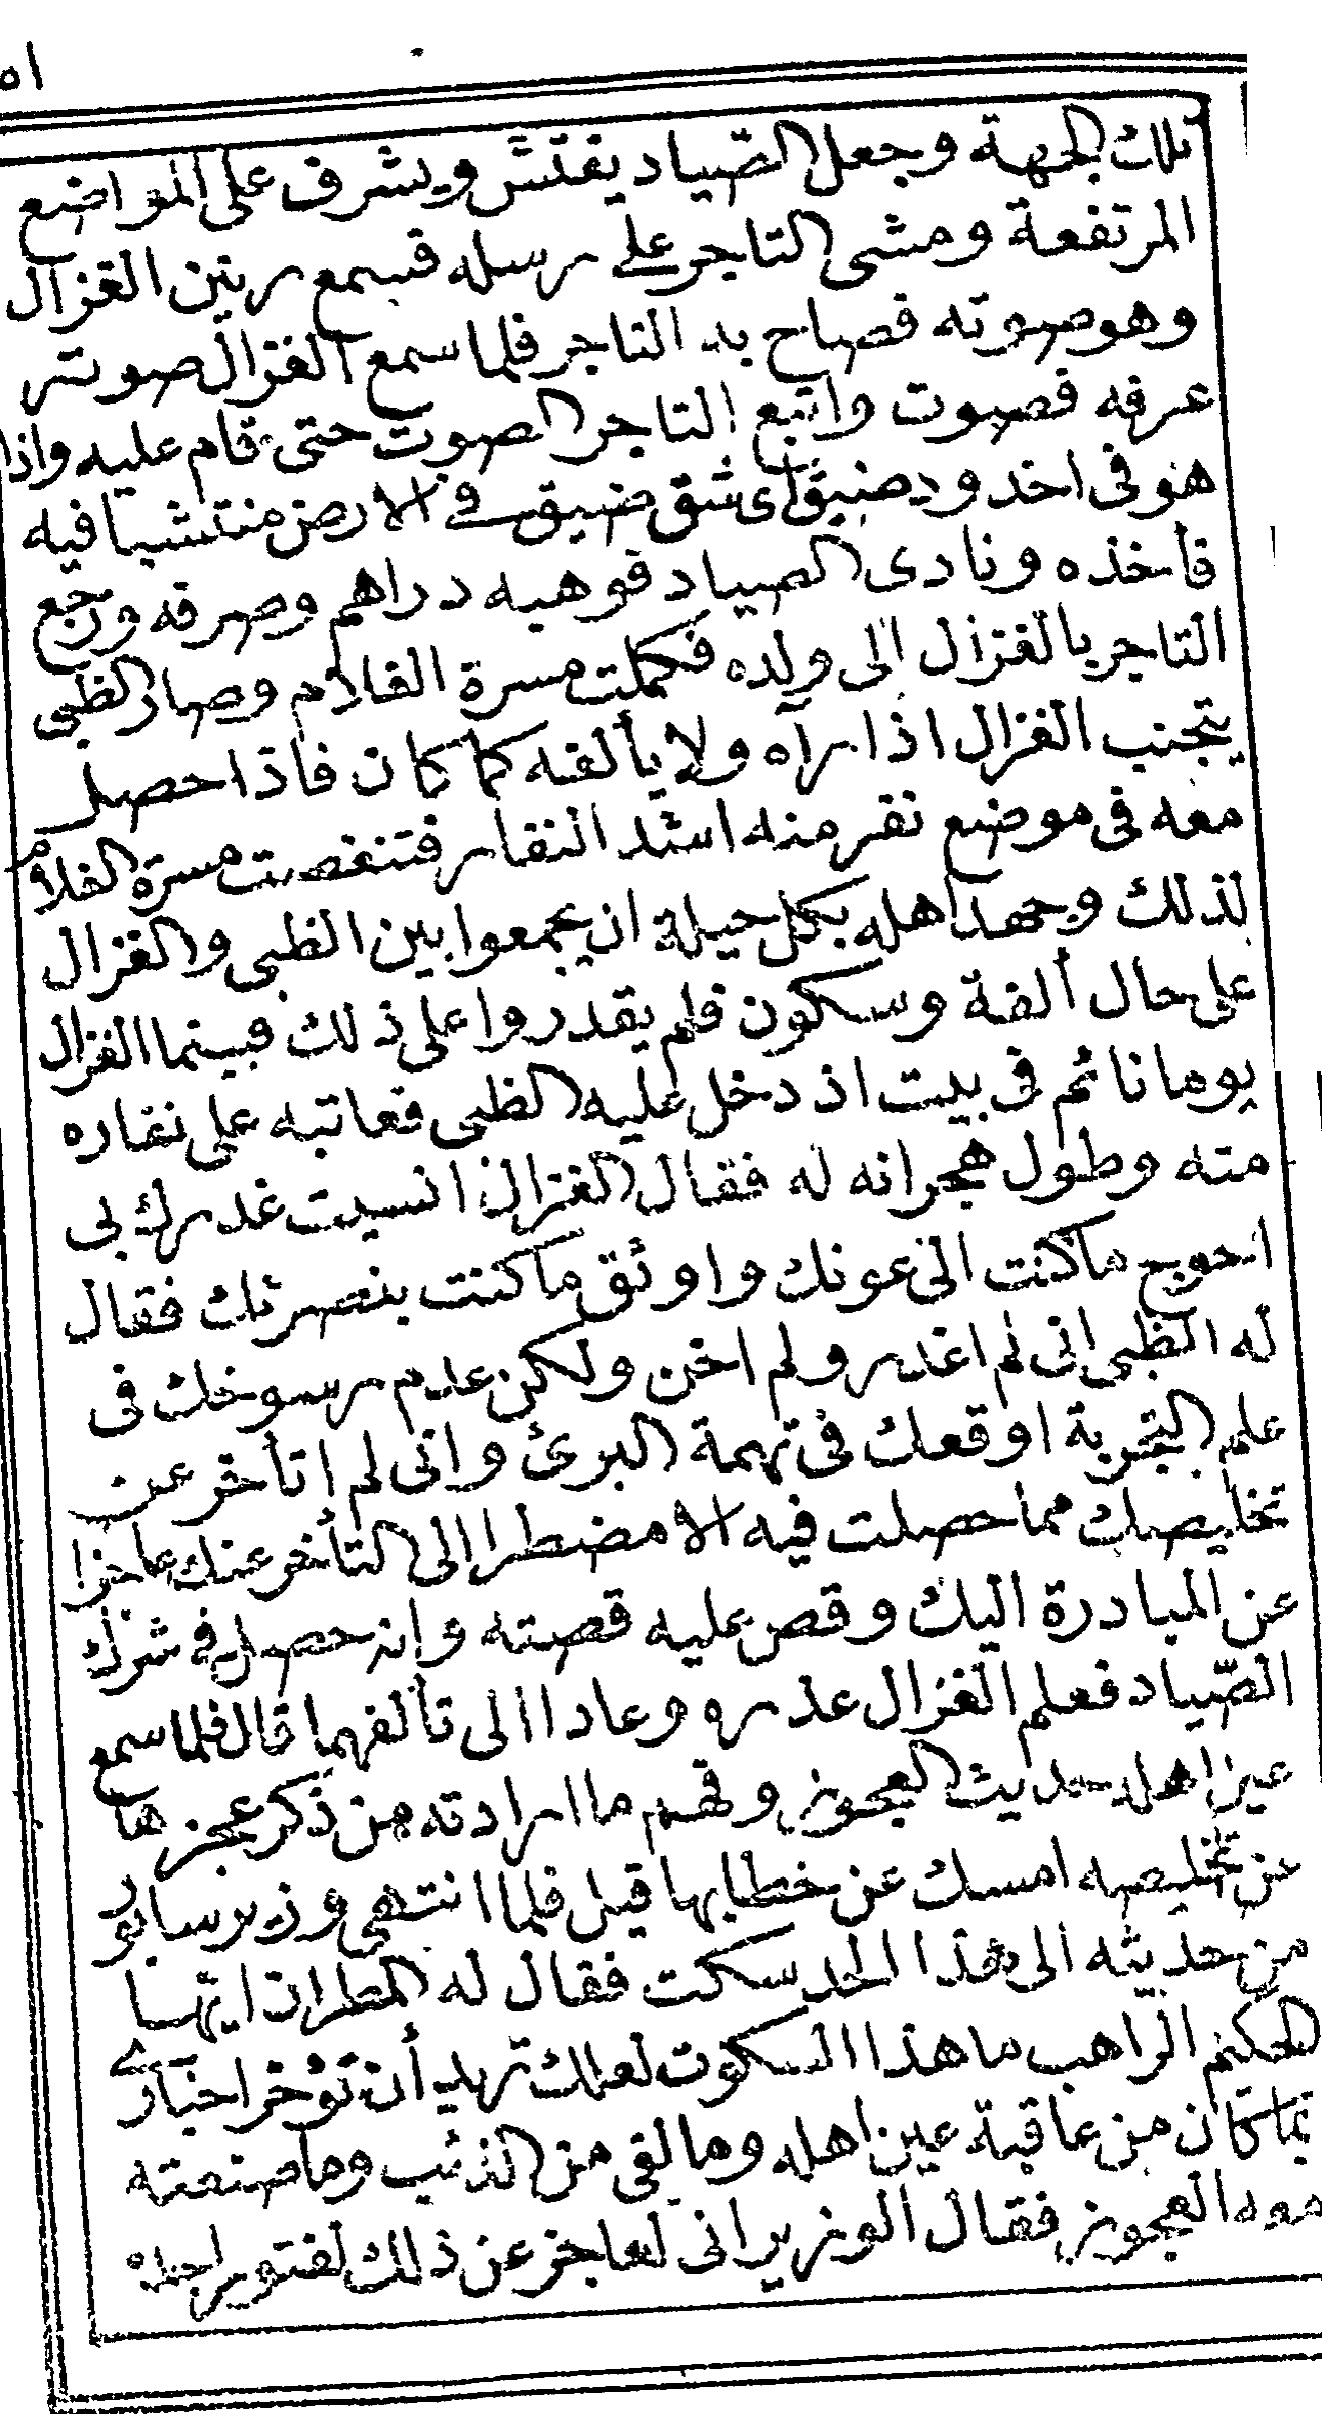 ٥١
تلك الجهة وجعل الصّياد يفتش ويشرف على المواضع
المرتفعة ومشى التاجر على رسله فسمع رنين الغزال
وهو صوته فصاح به التاجر فلما سمع الغزال صوته
عرفه فصوت واتبع التاجر الصوت حتى قام عليه واذا
هو فى اخدود ضيق أى شق ضيق فى الارض منتشبا فيه
فأخذه ونادى الصياد فوهبه دراهم وصرفه ورجع
التاجر بالغزال الى ولده فكملت مسرة الغلام وصار الظبى
يتجنب الغزال اذا رآه ولا يألفه كما كان فاذا حصل
معه فى موضع نفر منه اشد النفار فتنغصت مسرة الغلام
لذلك وجهد اهله بكل حيلة ان يجمعوا بين الظبى والغزال
على حال ألفة وسكون فلم يقدروا على ذلك فبينما الغزال
يوما نائم فى بيت اذ دخل عليه الظبى فعاتبه على نفاره
منه وطول هجرانه له فقال الغزال انسيت غدرك بى
احوج ما كنت الى عونك واوثق ما كنت بنصرتك فقال
له الظبى انى لم اغدر ولم اخن ولكن عدم رسوخك فى
علم التجربة اوقعك فى تهمة البرئ وانى لم اتأخر عن
تخليصك مما حصلت فيه الا مضطرا الى التأخر عنك عاجزا
عن المبادرة اليك وقص عليه قصته وانه حصل فى شرك
الصّياد فعلم الغزال عذره وعادا الى تألفهما قال فلما سمع
عين اهله حديث العجوز وفهم ما ارادته من ذكر عجزها
عن تخليصه امسك عن خطابها قيل فلما انتهى وزير سابور
من حديثه الى هذا الحد سكت فقال له المطران ايّها
الحكيم الراهب ما هذا السكوت لعلك تريد أن تؤخر اخبارى
بما كان من عاقبة عين اهله وما لقى من الذئب وما صنعته
معه العجوز فقال الوزير انى لعاجز عن ذلك لفتور اجده